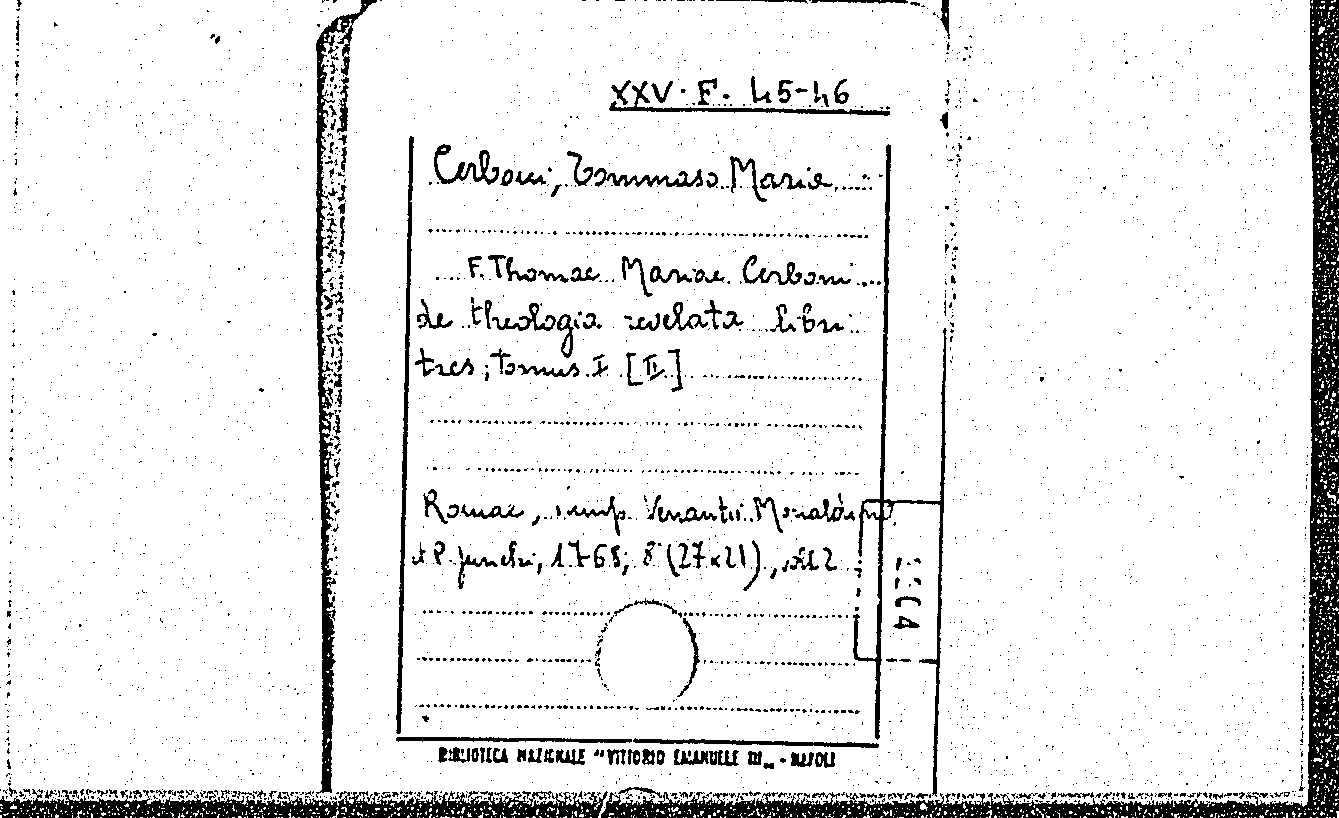 XXV. F. 45-46
Cerboni, Tommaso Maria
F. Thomae Mariae Cerboni
de theologia revelata libri
tres; tomus I [II]
Romae, imp. Venantii Monaldini
et P. Junchi, 1768; 8° (27x21), vol 2
BIBLIOTECA NAZIONALE "VITTORIO EMANUELE III" - NAPOLI